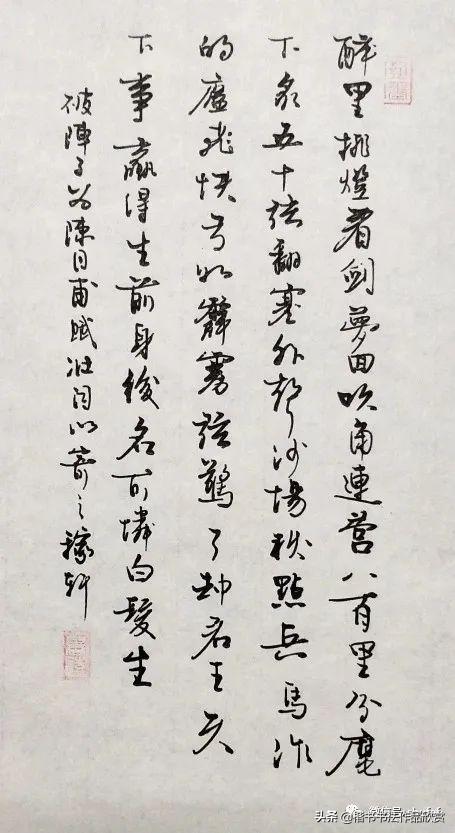 醉里挑燈看剑夢回吹角連营八百里分麾
下炙五十弦翻塞外声沙場秋點兵馬作
的盧飛快弓如霹雳弦驚了却君王天
下事贏得生前身後名可憐白髮生
破陣子为陳同甫賦壮词以寄之稼轩
头条 @楷书书法作品欣赏